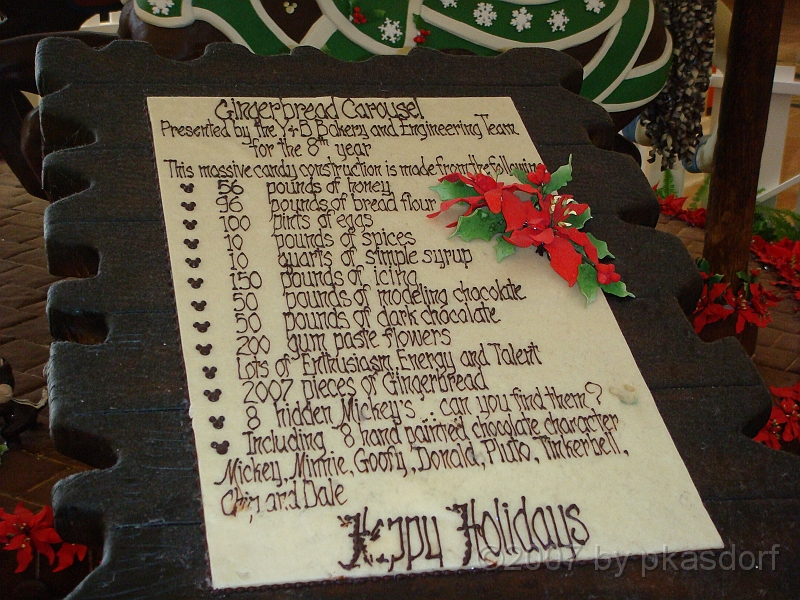 Gingerbread Carousel
Presented by the Y+B Bakery and Engineering Team
for the 8th year
This massive candy construction is made from the following
56 pounds of honey
96 pounds of bread flour
100 pints of eggs
10 pounds of spices
10 quarts of simple syrup
150 pounds of icing
50 pounds of modeling chocolate
50 pounds of dark chocolate
200 gum paste flowers
Lots of Enthusiasm, Energy and Talent
2007 pieces of Gingerbread
8 hidden Mickey's ... can you find them?
Including 8 hand painted chocolate character
Mickey, Minnie, Goofy, Donald, Pluto, Tinkerbell,
Chip and Dale
Happy Holidays
©2007 by pkasdorf